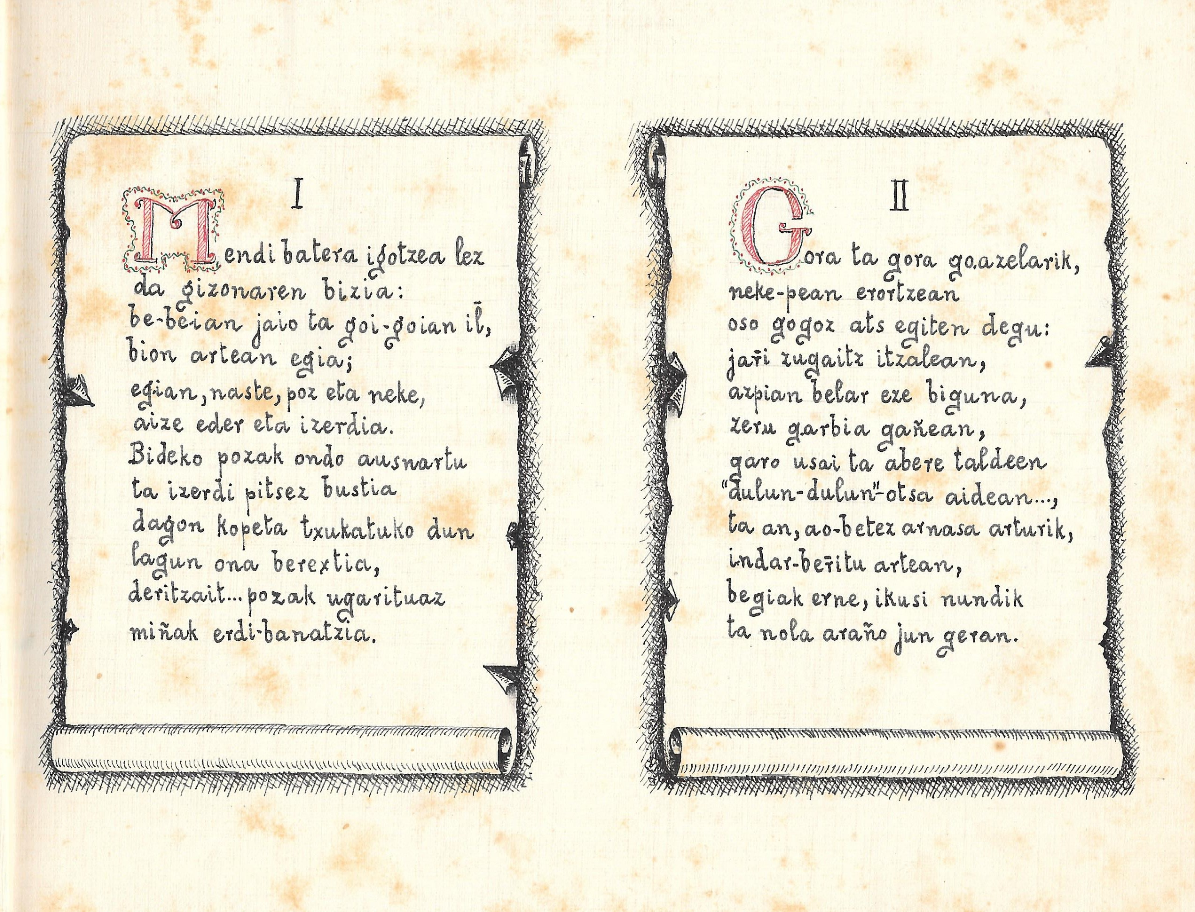 I
Mendi batera igotzea lez
da gizonaren bizia:
be-beian jaio ta goi-goian il̄,
bion artean egia;
egian, naste, poz eta neke,
aize eder eta izerdia.
Bideko pozak ondo ausnartu
ta izerdi pitsez bustia
dagon kopeta txukatuko dun
lagun ona berextia,
deritzait...pozak ugarituaz
miñak erdi-banatzia.
II
Gora ta gora goazelarik,
neke-pean erortzean
oso gogoz ats egiten degu:
jar̄i zugaitz itzalean,
azpian belar eze biguna,
zeru garbia gañean,
garo usai ta abere taldeen
"dulun-dulun"-otsa aidean...,
ta an, ao-betez arnasa arturik,
indar-ber̄itu artean,
begiak erne, ikusi nundik
ta nola araño jun geran.